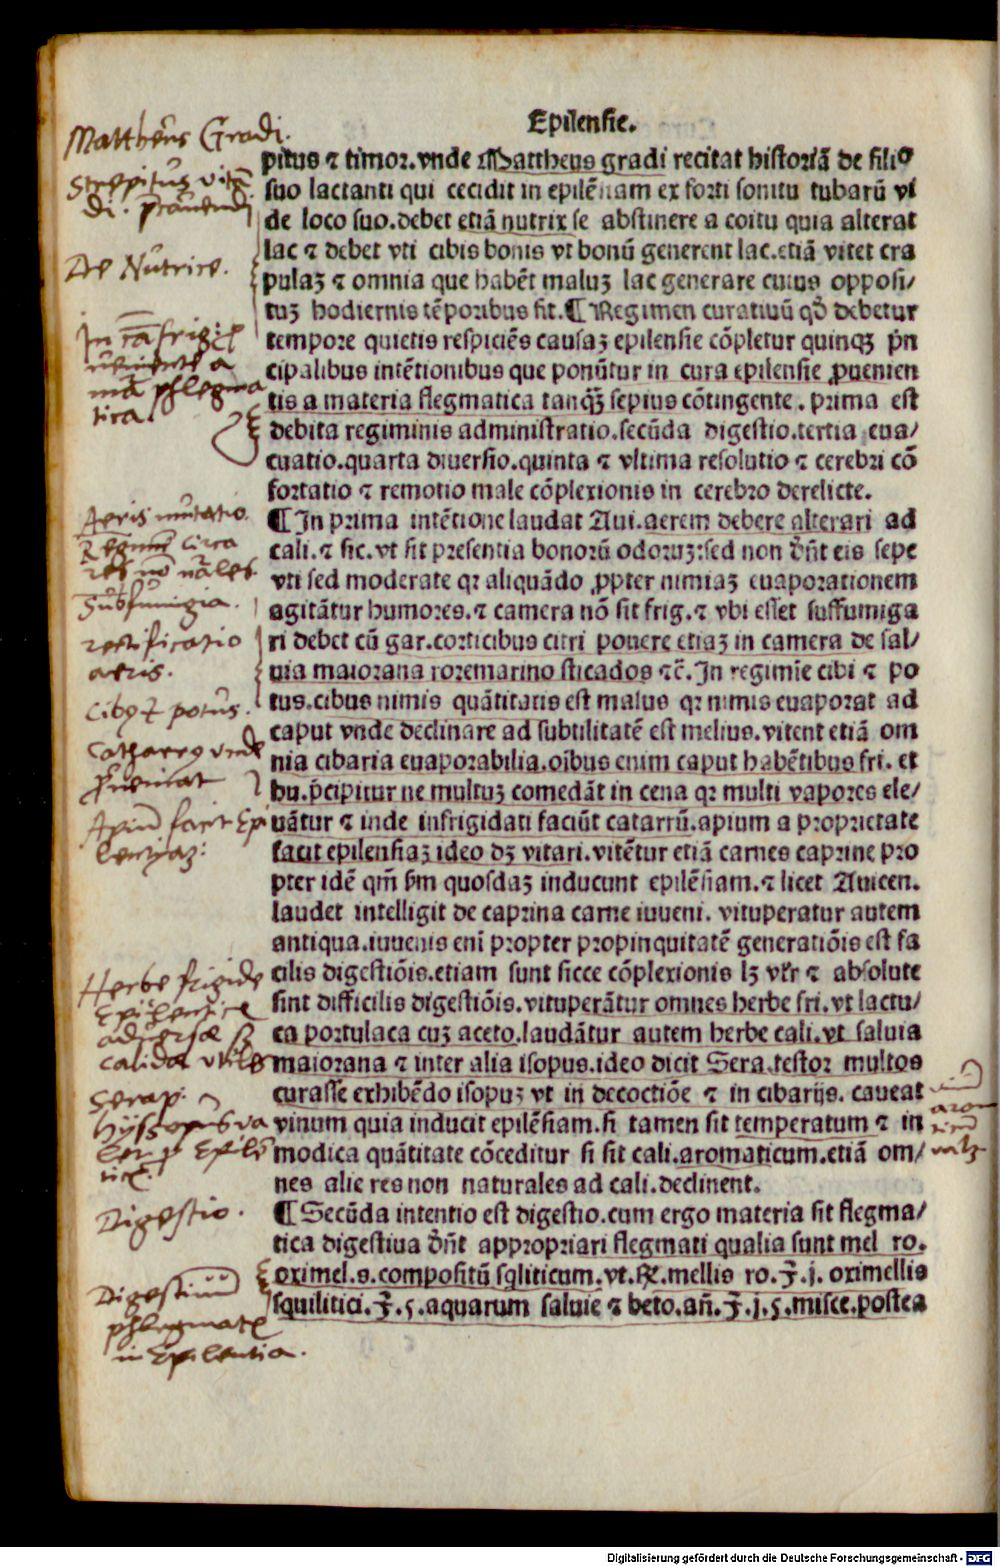 Epilensie.
pitus ⁊ timor.vnde Mattheus gradi recitat historiã de filio
suo lactanti qui cecidit in epilẽsiam ex forti sonitu tubarũ vi
de loco suo.debet etiã nutrix se abstinere a coitu quia alterat
lac ⁊ debet vti cibis bonis vt bonũ generent lac.etiã vitet cra
pulaꝫ ⁊ omnia que habẽt maluꝫ lac generare cuius opposi/
tuꝫ hodiernis tẽporibus fit.¶ Regimen curatiuũ qđ debetur
tempore quietis respiciẽs causaꝫ epilensie cõpletur quinqꝫ p̃n
cipalibus intẽtionibus que ponũtur in cura epilensie ꝓuenien
tis a materia flegmatica tanqꝫ̃ sepius cõtingente. prima est
debita regiminis administratio.secũda digestio.tertia eua/
cuatio.quarta diuersio.quinta ⁊ vltima resolutio ⁊ cerebri cõ
fortatio ⁊ remotio male cõplexionis in cerebro derelicte.
¶ In prima intẽtione laudat Aui.aerem debere alterari ad
cali.⁊ sic.vt sit presentia bonorũ odoruꝫ:sed non dñt eis sepe
vti sed moderate qꝛ aliquãdo ꝓpter nimiaꝫ euaporationem
agitãtur humores.⁊ camera nõ sit frig.⁊ vbi esset suffumiga
ri debet cũ gar.corticibus citri ponere etiaꝫ in camera de sal/
uia maiorana roremarino sticados ⁊c̃. In regimĩe cibi ⁊ po
tus.cibus nimis quãtitatis est malus qꝛ nimis euaporat ad
caput vnde declinare ad subtilitatẽ est melius.vitent etiã om
nia cibaria euaporabilia.oĩbus enim caput habẽtibus fri. et
hu.p̃cipitur ne multuꝫ comedãt in cena qꝛ multi vapores ele/
uãtur ⁊ inde infrigidati faciũt catarrũ.apium a proprietate
facit epilensiaꝫ ideo dꝫ vitari.vitẽtur etiã carnes caprine pro
pter idẽ qm̃ ẜm quosdaꝫ inducunt epilẽsiam.⁊ licet Auicen.
laudet intelligit de caprina carne iuueni. vituperatur autem
antiqua.iuuenis eni propter propinquitatẽ generatiõis est fa
cilis digestiõis.etiam sunt sicce cõplexionis lꝫ vłr ⁊ absolute
sint difficilis digestiõis.vituperãtur omnes herbe fri.vt lactu/
ca portulaca cuꝫ aceto.laudãtur autem herbe cali.vt saluia
maiorana ⁊ inter alia isopus.ideo dicit Sera.testor multos
curasse exhibẽdo isopuꝫ vt in decoctiõe ⁊ in cibarijs. caueat
vinum quia inducit epilẽsiam.si tamen sit temperatum ⁊ in
modica quãtitate cõceditur si sit cali.aromaticum.etiã om/
nes alie res non naturales ad cali.declinent.
¶ Secũda intentio est digestio.cum ergo materia sit flegma/
tica digestiua dñt appropriari flegmati qualia sunt mel ro.
oximel.s.compositũ sqliticum.vt.℞.mellis ro.℥.j. oximellis
squilitici.℥.ꝭ.aquarum saluie ⁊ beto.añ.℥.j.ꝭ.misce.postea
Mattheus Gradi.
Strepitus vitã
di.
De Nutrice.
tica.
Aeris mutatio.
circa
res nõ nãles.
Subfumigia.
rectificatio
aeris.
Cibꝯ ⁊ potus.
Apiũ facit Epi
lentiaꝫ:
Herbe frigide
Epilentice
adversæ
calidæ utiles
Serap:
Digestio.
Digestivũ
phlegmatis
in Epilentia.
Digitalisierung gefördert durch die Deutsche Forschungsgemeinschaft - DFG